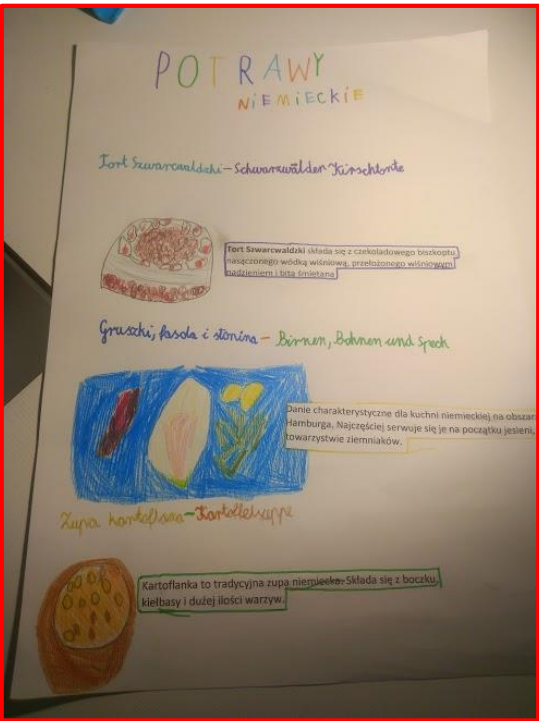 POTRAWY
NiEMiECKiE
Tort Szwarcwaldzki – Schwarzwälder Kirschtorte
Tort Szwarcwaldzki składa się z czekoladowego biszkoptu,
nasączonego wódką wiśniową, przełożonego wiśniowym
nadzieniem i bitą śmietaną
Gruszki, fasola i słonina – Birnen, Bohnen und Speck
Danie charakterystyczne dla kuchni niemieckiej na obszar
Hamburga. Najczęściej serwuje się je na początku jesieni,
towarzystwie ziemniaków.
Zupa kartoflana – Kartoffelsuppe
Kartoflanka to tradycyjna zupa niemiecka. Składa się z boczku,
kiełbasy i dużej ilości warzyw.